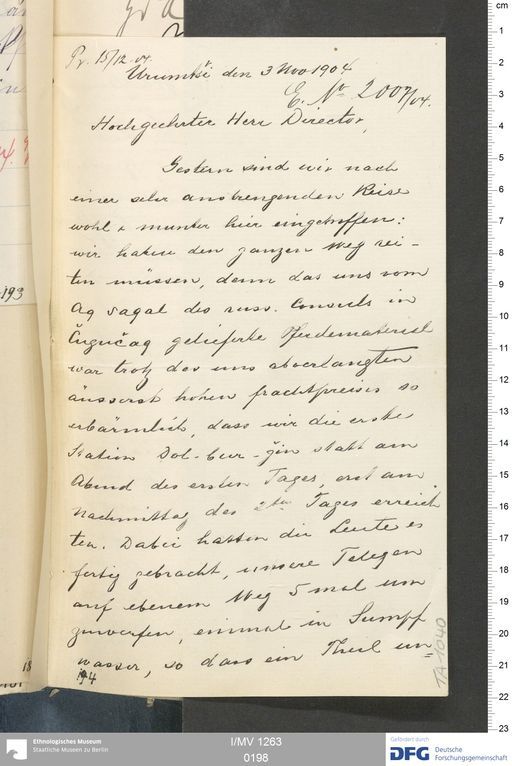 Pr. 15/12.04.
Urumtši den 3 Nov. 1904
E. No 2007/04.
Hochgeehrter Herr Director,
Gestern sind wir nach
einer sehr anstrengenden Reise
wohl & munter hier eingetroffen:
wir haben den ganzen Weg rei-
ten müssen, denn das uns vom
Aq saqal des russ. Consuls in
Čugučaq gelieferte Pferdematerial
war trotz des uns abverlangten
äusserst hohen Frachtpreises so
erbärmlich, dass wir die erste
Station Dol-bur-ǧin statt am
Abend des ersten Tages, erst am
Nachmittag des 2ten Tages erreich
ten. Dabei hatten die Leute es
fertig gebracht, unsere Telegen
auf ebenem Weg 5 mal um
zuwerfen, einmal in Sumpf
wasser, so dass ein Theil un=
194
TA 1040
193
cm
1
2
3
4
5
6
7
8
9
10
11
12
13
14
15
16
17
18
19
20
21
22
23
Ethnologisches Museum
Staatliche Museen zu Berlin
I/MV 1263
0198
Gefördert durch
DFG Deutsche
Forschungsgemeinschaft